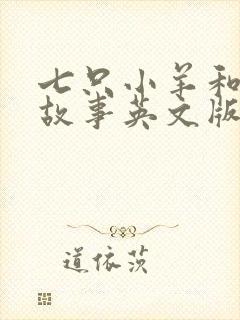 七只小羊和
故事英文版
道依茨